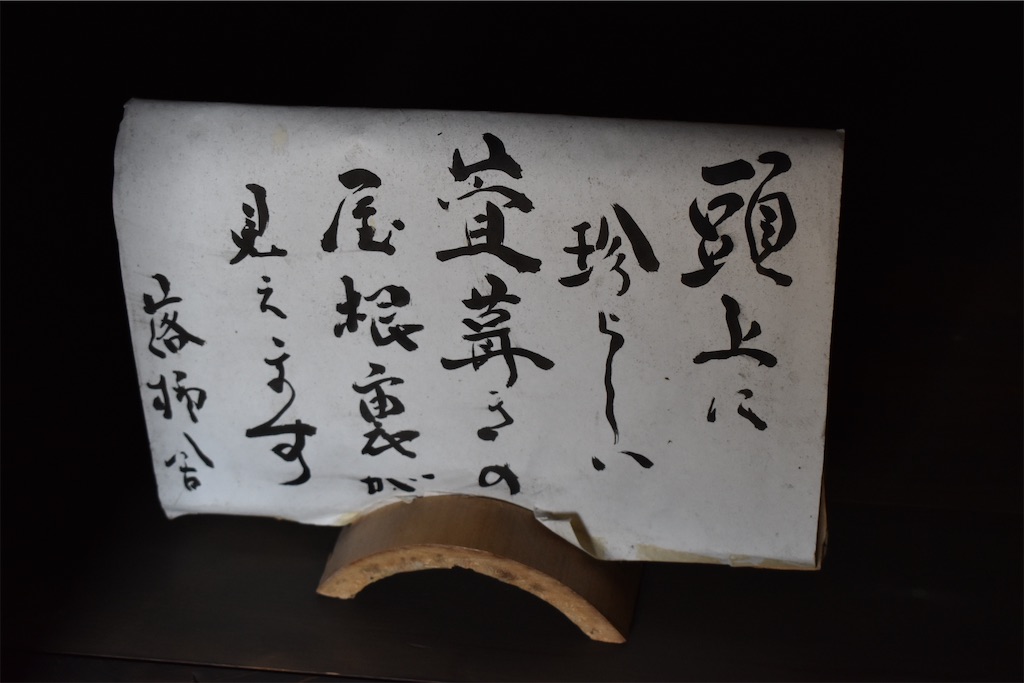 頭上に
珍らしい
萱葺きの
屋根裏が
見えます
落柿舎